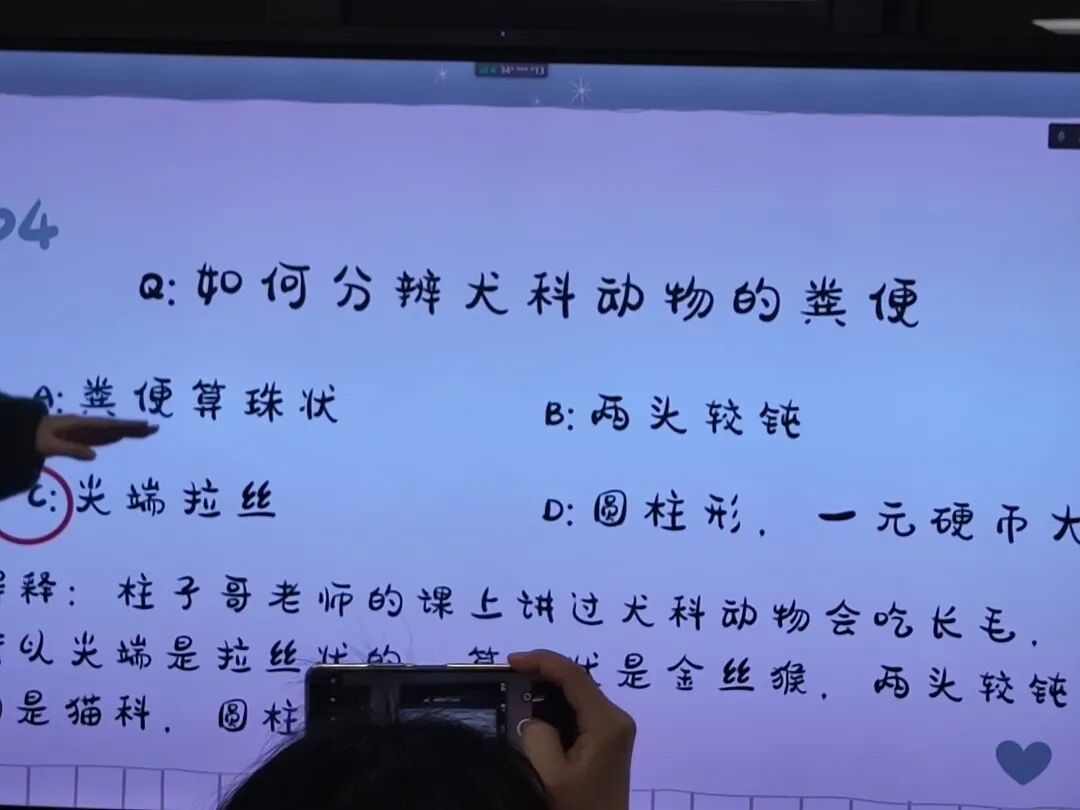 04
Q: 如何分辨犬科动物的粪便
A: 粪便算珠状
B: 两头较钝
C: 尖端拉丝
D: 圆柱形. 一元硬币大
解释: 柱子哥老师的课上讲过犬科动物会吃长毛.
以尖端是拉丝状的 算 状是金丝猴. 两头较钝
是猫科. 圆柱